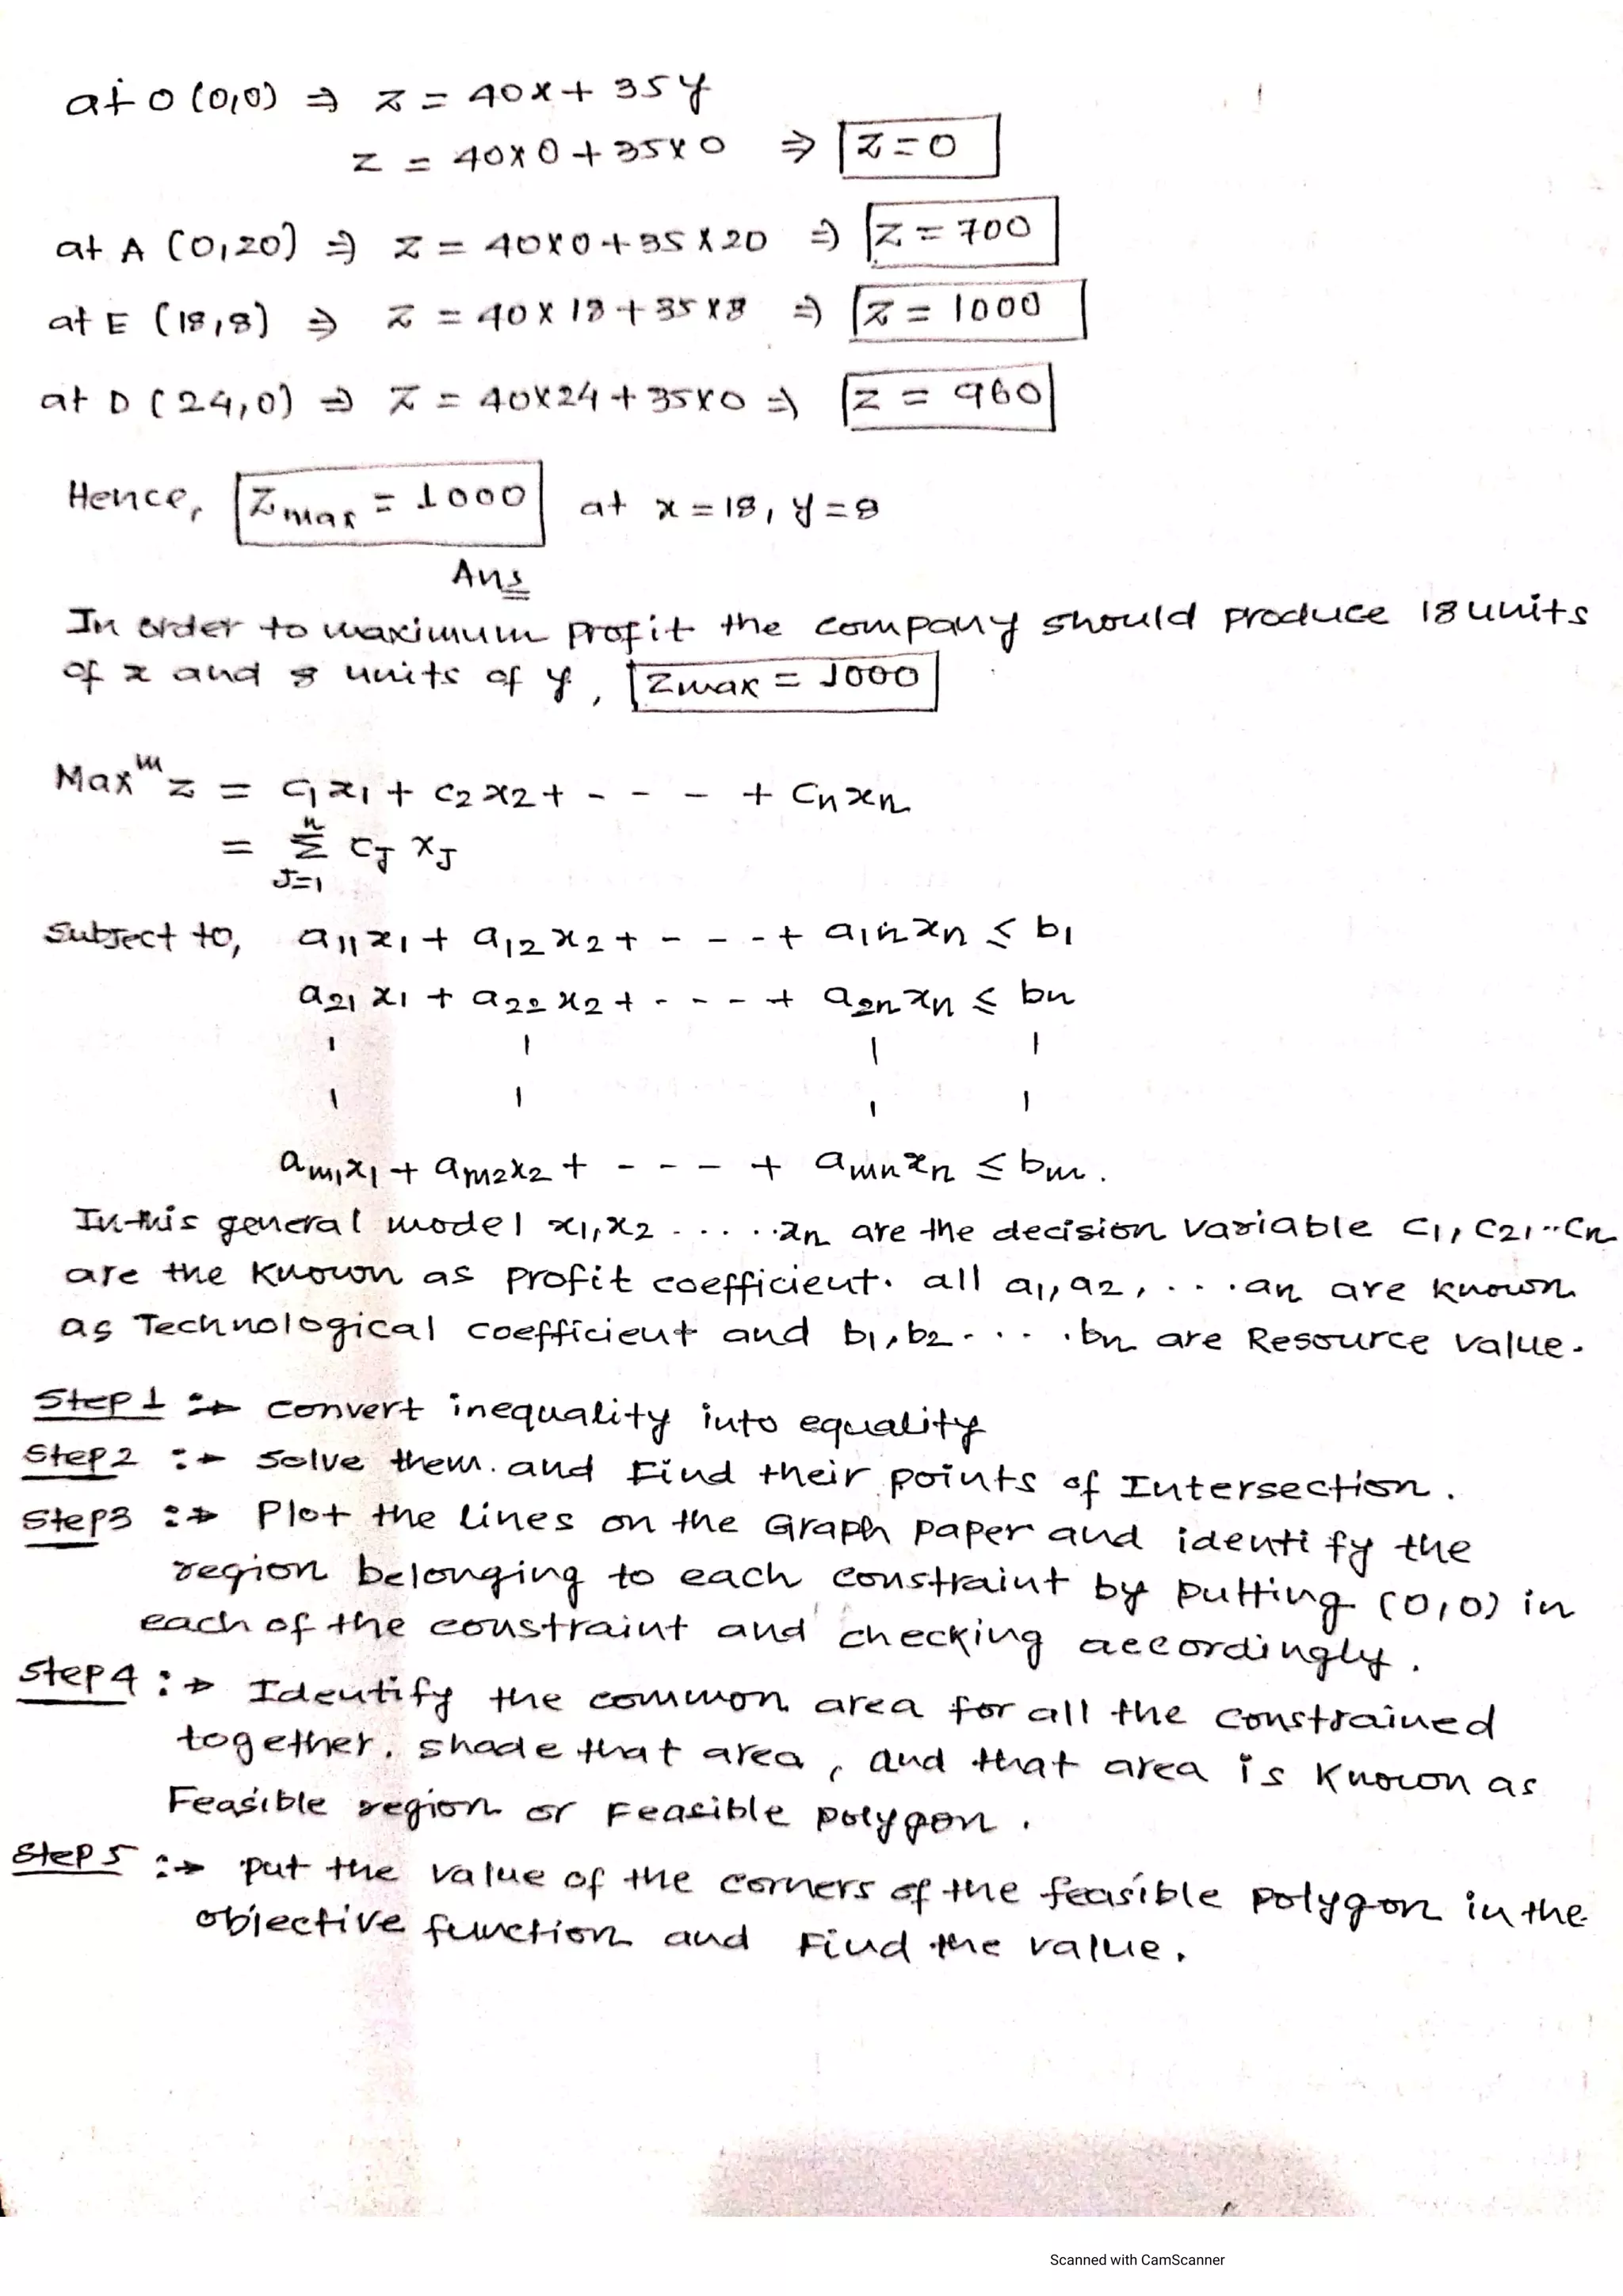 at O (0,0) ⇒ z = 40x + 35y
z = 40×0 + 35×0 ⇒ z=0
at A (0,20) ⇒ z = 40×0+35×20 ⇒ z = 700
at E (18,8) ⇒ z = 40×18+35×8 ⇒ z = 1000
at D (24,0) ⇒ z = 40×24+35×0 ⇒ z = 960
Hence, Zmax = 1000 at x=18, y=8
Ans
In order to maximum profit the company should produce 18 units
of x and 8 units of y, Zmax = 1000
Maxᵐ z = c1x1 + c2x2 + - - - + cnxn
= Σ(J=1 to n) cJ xJ
Subject to, a11x1 + a12x2 + - - - + a1nxn ≤ b1
a21x1 + a22x2 + - - - - + a2nxn ≤ bn
am1x1 + am2x2 + - - - + amnxn ≤ bm.
In this general model x1,x2 ......xn are the decision variable c1, c2,..cn
are the known as profit coefficient. all a1, a2, ....an are known
as Technological coefficient and b1, b2.... .bn are Resource value.
Step 1 :→ convert inequality into equality
Step 2 :→ Solve them. and Find their points of Intersection.
Step3 :→ Plot the lines on the Graph paper and identify the
region belonging to each constraint by putting (0,0) in
each of the constraint and checking accordingly.
Step 4 :→ Identify the common area for all the constrained
together. shade that area, and that area is known as
Feasible region or Feasible polygon.
Step 5 :→ put the value of the corners of the feasible polygon in the
objective function and Find the value.
Scanned with CamScanner